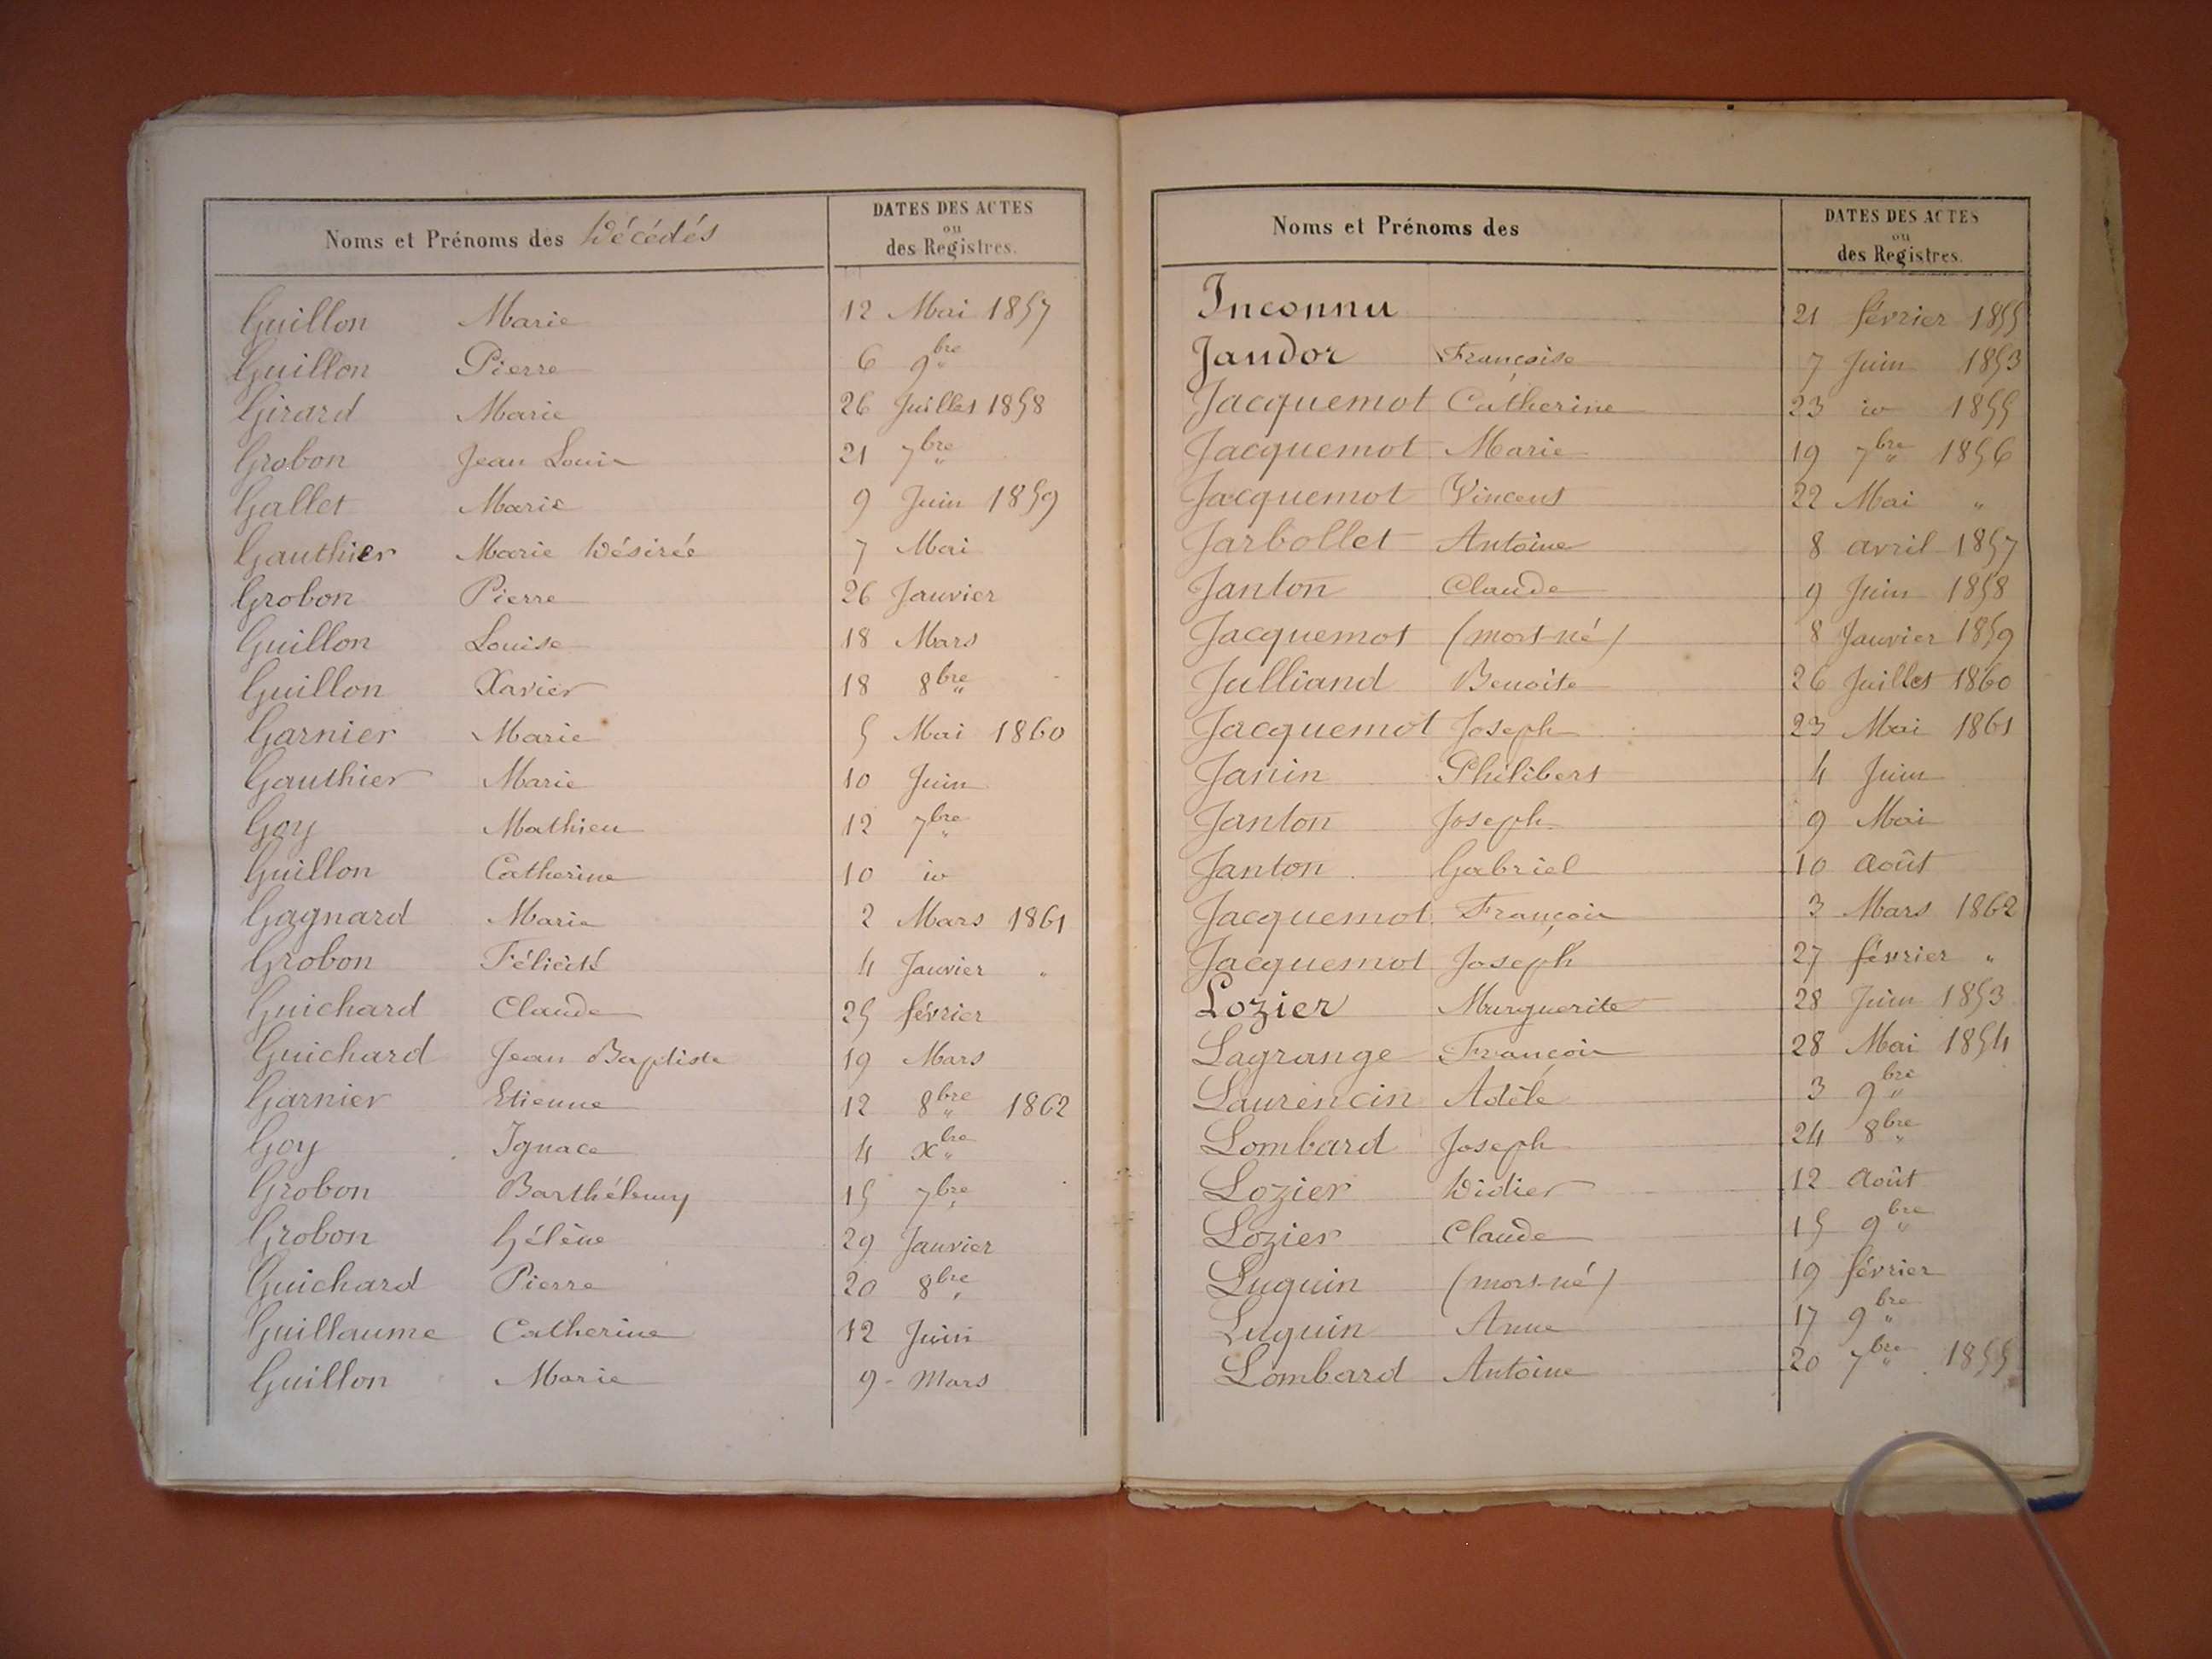 Noms et Prénoms des Décédés
DATES DES ACTES
ou
des Registres.
Guillon Marie 12 Mai 1857
Guillon Pierre 6 9bre "
Girard Marie 26 Juillet 1858
Grobon Jean Louis 21 7bre "
Gallet Marie 9 Juin 1859
Gauthier Marie Désirée 7 Mai
Grobon Pierre 26 Janvier
Guillon Louise 18 Mars
Guillon Xavier 18 8bre "
Garnier Marie 5 Mai 1860
Gauthier Marie 10 Juin
Goy Mathieu 12 7bre "
Guillon Catherine 10 io
Gagnard Marie 2 Mars 1861
Grobon Félicité 4 Janvier "
Guichard Claude 25 février
Guichard Jean Baptiste 19 Mars
Garnier Etienne 12 8bre " 1862
Goy Ignace 4 xbre "
Grobon Barthélemy 15 7bre "
Grobon hélène 29 Janvier
Guichard Pierre 20 8bre "
Guillaume Catherine 12 Juin
Guillon Marie 9 - Mars
Noms et Prénoms des
DATES DES ACTES
ou
des Registres.
Inconnu 21 février 1855
Jandor Françoise 7 Juin 1853
Jacquemot Catherine 23 io 1855
Jacquemot Marie 19 7bre " 1856
Jacquemot Vincent 22 Mai "
Jarbollet Antoine 8 avril 1857
Janton Claude 9 Juin 1858
Jacquemot (mort-né) 8 Janvier 1859
Julliand Benoite 26 Juillet 1860
Jacquemot Joseph 23 Mai 1861
Janin Philibert 4 Juin
Janton Joseph 9 Mai
Janton Gabriel 10 août
Jacquemot François 3 Mars 1862
Jacquemot Joseph 27 février "
Lozier Marguerite 28 Juin 1853
Lagrange François 28 Mai 1854
Laurencin Adèle 3 9bre "
Lombard Joseph 24 8bre "
Lozier Didier 12 Août
Lozier Claude 15 9bre "
Luquin (mort-né) 19 février
Luquin Anne 17 9bre "
Lombard Antoine 20 7bre " 1855